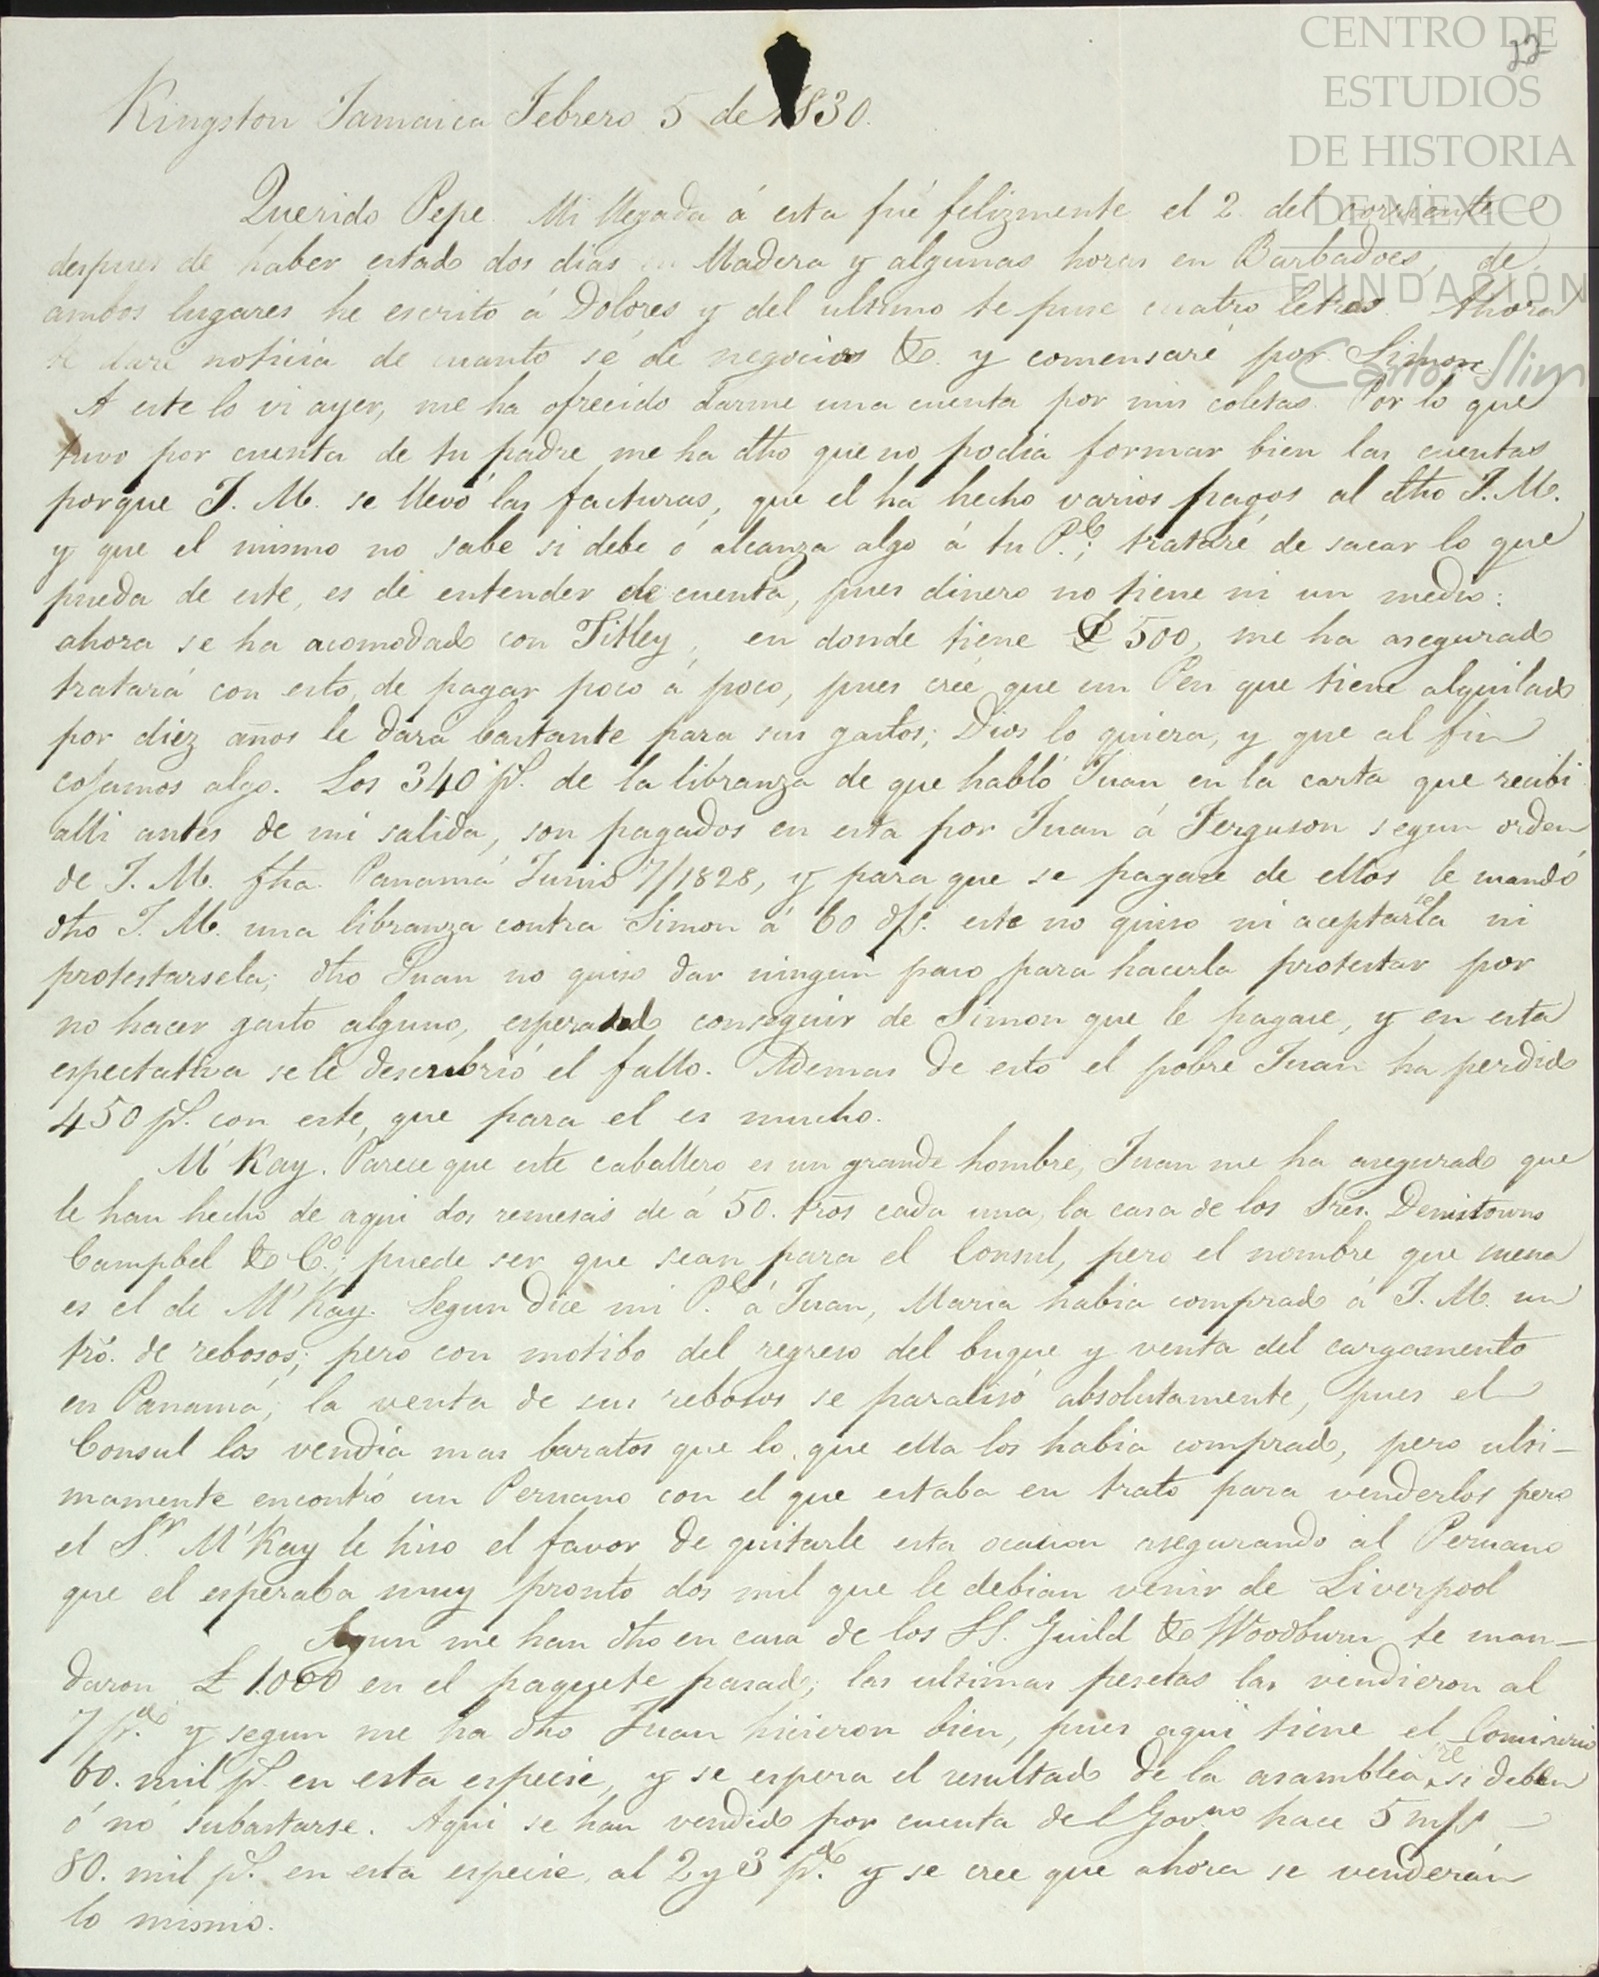 CENTRO DE
ESTUDIOS
DE HISTORIA
DE MÉXICO
FUNDACIÓN
Carlos Slim
22
Kingston Jamaica Febrero 5 de 1830.
Querido Pepe. Mi llegada á esta fué felizmente el 2 del corriente
despues de haber estado dos dias en Madera y algunas horas en Barbadoes, de
ambos lugares he escrito á Dolores y del ultimo te puse cuatro letras. Ahora
te daré noticia de cuanto sé de negocios &. y comensaré por Simon.
A este lo vi ayer, me ha ofrecido darme una cuenta por mis coletas. Por lo que
tuvo por cuenta de tu padre me ha dho que no podia formar bien las cuentas
porque J. M. se llevó las facturas, que el ha hecho varios pagos al dho J. M.
y que el mismo no sabe si debe ó alcanza algo á tu P.e; trataré de sacar lo que
pueda de este, es de entender de cuenta, pues dinero no tiene ni un medio:
ahora se ha acomodado con Titley, en donde tiene £ 500, me ha asegurado
tratará con esto, de pagar poco á poco, pues creé que un Pen que tiene alquilado
por diez años le dará bastante para sus gastos; Dios lo quiera, y que al fin
cojamos algo. Los 340 ps. de la libranza de que habló Juan en la carta que recibi
alli antes de mi salida, son pagados en esta por Juan á Ferguson segun orden
de J. M. fha. Panamá Junio 7/1828, y para que se pagase de ellos le mandó
dho J. M. una libranza contra Simon á 60 d/s. este no quiso ni aceptarsela ni
protestarsela; dho Juan no quiso dar ningun paso para hacerla protestar por
no hacer gasto alguno, esperando conseguir de Simon que le pagase, y en esta
espectativa se le descubrió el fallo. Ademas de esto el pobre Juan ha perdido
450 ps. con este, que para el es mucho.
M'Kay. Parece que este caballero es un grande hombre, Juan me ha asegurado que
le han hecho de aqui dos remesas de á 50. tros cada una, la casa de los Sres. Denistowns
Campbel & Co.; puede ser que sean para el Consul, pero el nombre que suena
es el de M'Kay. Segun dice mi P.e á Juan, Maria habia comprado á J. M. un
tro. de rebosos; pero con motibo del regreso del buque y venta del cargamento
en Panamá, la venta de sus rebosos se paralisó absolutamente, pues el
Consul los vendía mas baratos que lo que ella los habia comprado, pero ulti-
mamente encontró un Peruano con el que estaba en trato para venderlos pero
el Sr. M'Kay le hiso el favor de quitarle esta ocasion asegurando al Peruano
que el esperaba muy pronto dos mil que le debian venir de Liverpool
Segun me han dho en casa de los SS. Guild & Woodburn te man-
daron £ 1.000 en el paquete pasado, las ultimas pesetas las vendieron al
7 p.% y segun me ha dho Juan hicieron bien, pues aqui tiene el Comisario
60. mil ps. en esta especie, y se espera el resultado de la asamblea, si deben
ó nó subastarse. Aqui se han vendido por cuenta del Gov.no hace 5 m/s
80. mil ps. en esta especie, al 2 y 3 p.% y se cree que ahora se venderán
lo mismo.